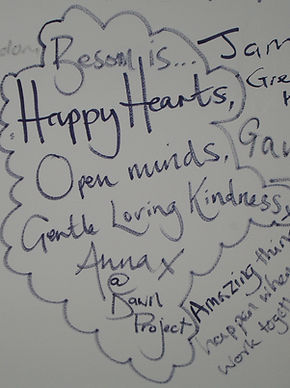 Besom is...
Happy Hearts,
Open minds,
Gentle Loving Kindness,
Anna x
@
Dawn
Project
Jam
Gre
Gav
Amazing thin
happen when
work toget
don,